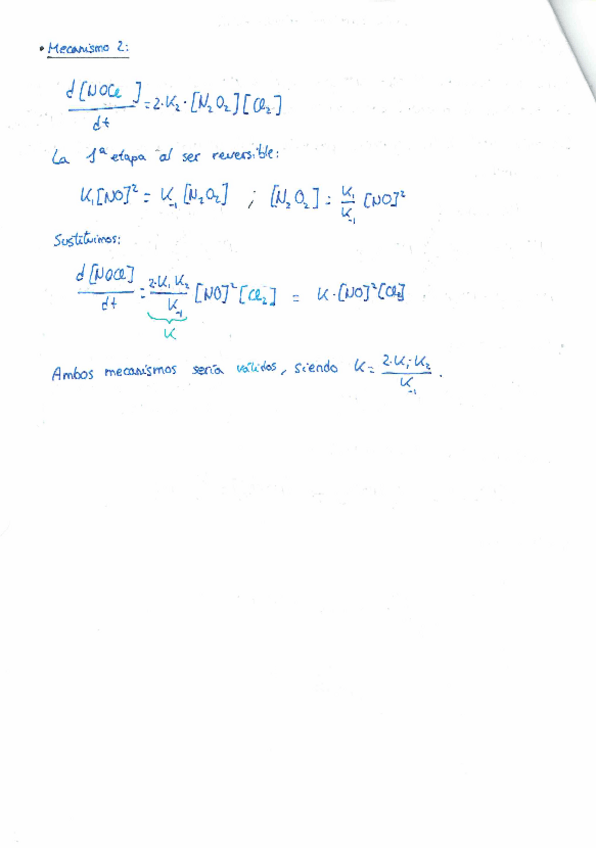 • Mecanismo 2:
d[NOCl]/dt = 2·K₂·[N₂O₂][Cl₂]
La 1ª etapa al ser reversible:
K₁[NO]² = K₋₁[N₂O₂] ; [N₂O₂] = K₁/K₋₁ [NO]²
Sustituimos:
d[NOCl]/dt = 2·K₁K₂/K₋₁ [NO]²[Cl₂] = K·[NO]²[Cl₂]
K
Ambos mecanismos sería válidos, siendo K = 2·K₁·K₂/K₋₁.